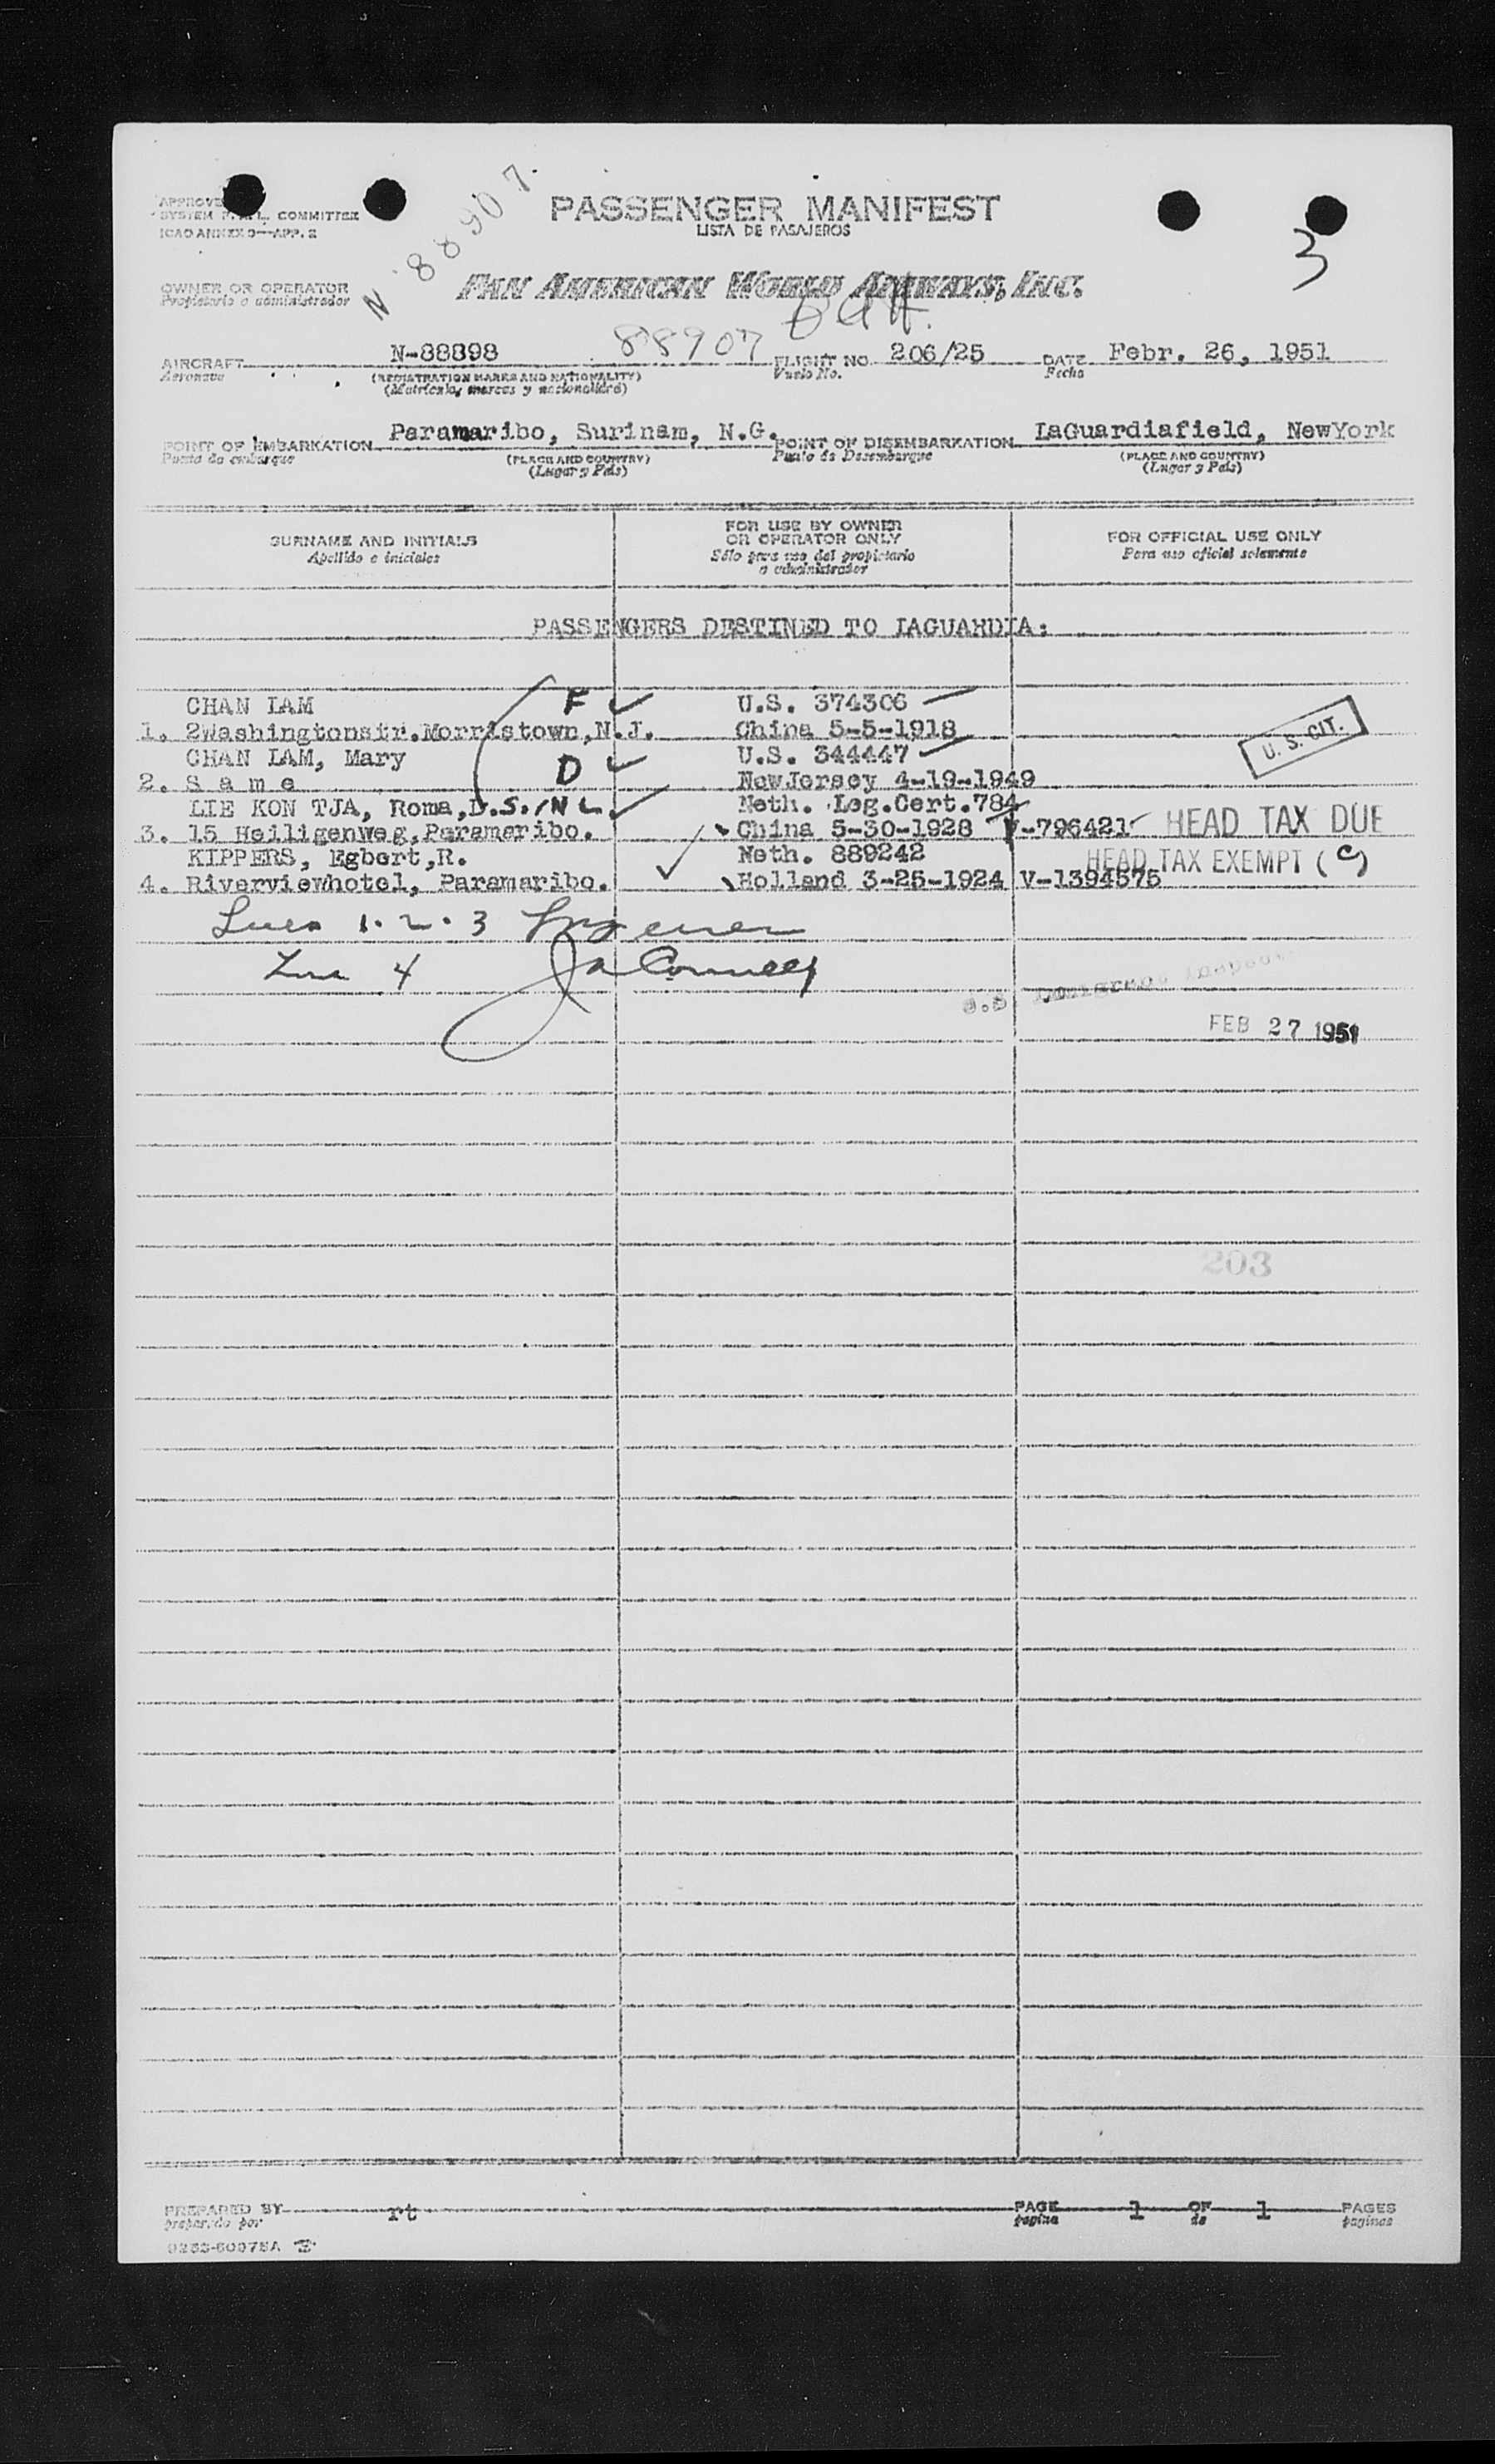 N 88907
APPROVE
SYSTEM F.A.L. COMMITTEE
ICAO ANNEX 9—APP. 2
PASSENGER MANIFEST
LISTA DE PASAJEROS
3
OWNER OR OPERATOR
Propietario o administrador
PAN AMERICAN WORLD AIRWAYS, INC.
AIRCRAFT N-88898 88907 FLIGHT NO. 206/25 DATE Febr. 26, 1951
Aeronave (REGISTRATION MARKS AND NATIONALITY) Vuelo No. Fecha
(Matrícula, marcas y nacionalidad)
POINT OF EMBARKATION Paramaribo, Surinam, N.G. POINT OF DISEMBARKATION LaGuardiafield, NewYork
Punto de embarque (PLACE AND COUNTRY) Punto de Desembarque (PLACE AND COUNTRY)
(Lugar y País) (Lugar y País)
SURNAME AND INITIALS
Apellido e iniciales
FOR USE BY OWNER
OR OPERATOR ONLY
Sólo para uso del propietario
o administrador
FOR OFFICIAL USE ONLY
Para uso oficial solamente
PASSENGERS DESTINED TO LAGUARDIA:
CHAN LAM F U.S. 374306
1. 2Washingtonstr.Morristown,N.J. China 5-5-1918 U. S. CIT.
CHAN LAM, Mary U.S. 344447
2. S a m e D NewJersey 4-19-1949
LIE KON TJA, Roma,D.S./NL Neth. Leg.Cert.784
3. 15 Heiligenweg,Paramaribo. China 5-30-1928 V-796421 HEAD TAX DUE
KIPPERS, Egbert,R. Neth. 889242 HEAD TAX EXEMPT (C)
4. Riverviewhotel, Paramaribo. Holland 3-25-1924 V-1394575
Lines 1-2-3
Line 4
U.S. Immigrant Inspector
FEB 27 1951
203
PREPARED BY rt PAGE 1 OF 1 PAGES
preparado por página de páginas